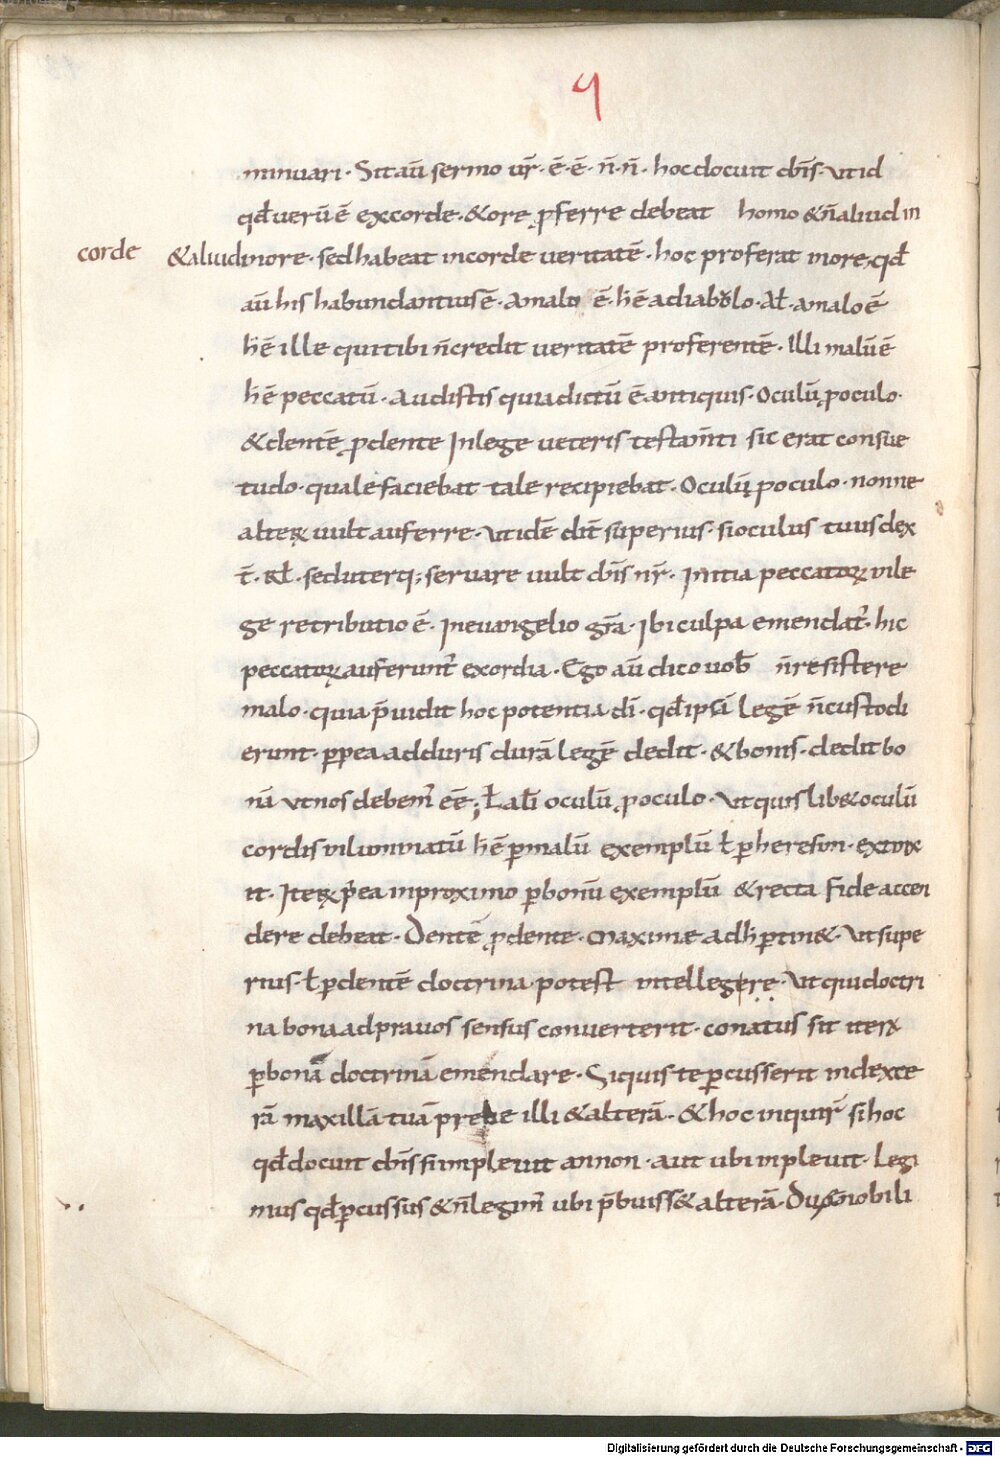 9
minuari · Sit aū sermo ur̄ · ē · ē · n̄ · n̄ · hoc docuit dn̄s · ut id
qđ uerū ē ex corde · & ore ꝓferre debeat homo & n̄ aliud in
corde & aliud in ore · sed habeat in corde ueritatē · hoc proferat in ore · qđ
aū his habundantius ē · a malo ē · h̄ ē a diabolo · Ał · a malo ē
h̄ ē ille qui tibi n̄ credit ueritatē proferentē · Illi malū ē
h̄ ē peccatū · Audistis quia dictū ē antiquis · Oculū ꝓ oculo ·
& dentē ꝓ dente In lege ueteris testam̄ti sic erat consue
tudo · quale faciebat tale recipiebat · Oculū ꝓ oculo · nonne
alterꝝ uult auferre · ut idē dn̄t superius · si oculus tuus dex
t̄ · & ł · sed uterq; seruare uult dn̄s nr̄ · Initia peccatoꝝ in le
ge retributio ē · In euangelio gr̄a · Ibi culpa emendat̄ · hic
peccatoꝝ auferunt̄ exordia · Ego aū dico uob̄ n̄ resistere
malo · quia p̄uidit hoc potentia dī · qđ ipsi legē n̄ custodi
erunt · ꝓpea ad duris durā legē dedit · & bonis · dedit bo
nā ut nos debem̄ eē ; ł ab̄ oculū ꝓ oculo · ut quis lib& oculū
cordis h̄ ē ꝑ malū exemplū ł ꝑ heresin ·
it · Iterꝝ p̄ea in proximo ꝑ bonū exemplū & recta fide accen
dere debeat · Dentē ꝓ dente · Maximæ ad h̄ ꝑtin& · ut supe
rius · ł ꝑ dentē doctrina potest intellegere · ut qui doctri
na bona ad prauos sensus conuerterit · conatus sit iterꝝ
ꝑ bonā doctrinā emendare · Si quis te ꝑcusserit in dexte
rā maxillā tuā prebe illi & alterā · & hoc inquir̄ si hoc
qđ docuit dn̄s si impleuit an non · aut ubi inpleuit · Legi
mus qđ ꝑcussus & n̄ legim̄ ubi p̄buiss& alterā · nobili